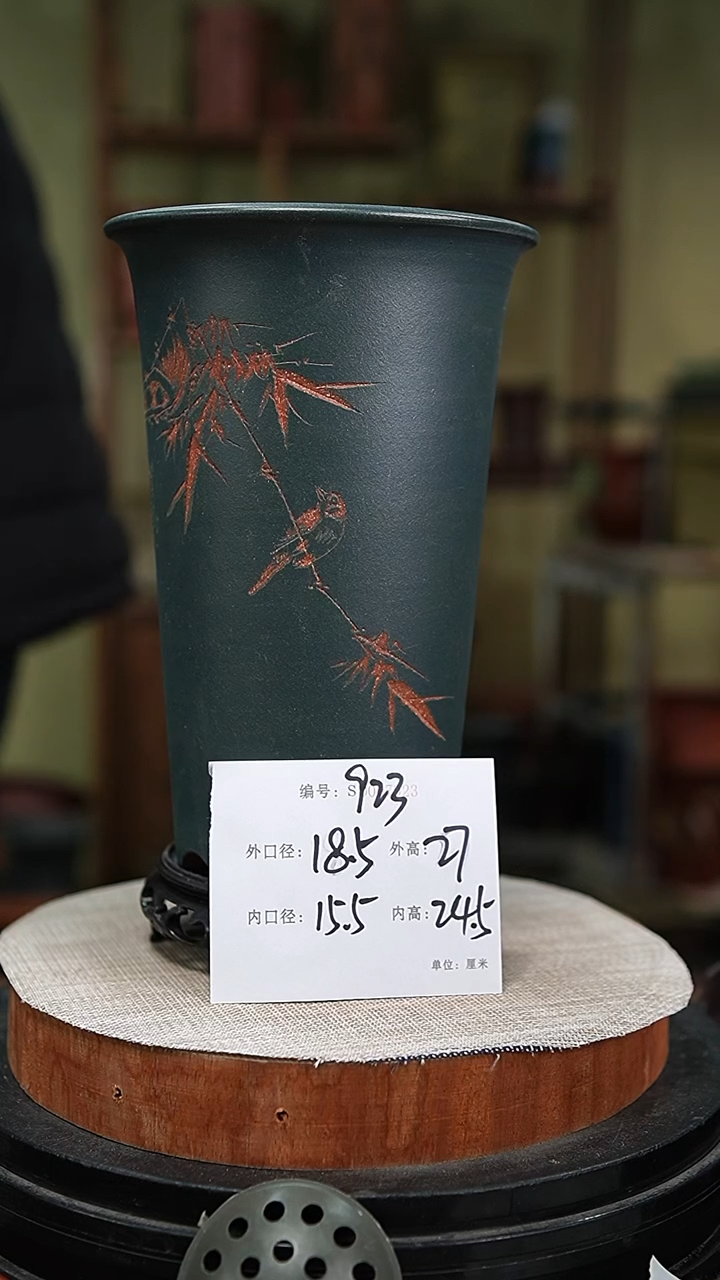 编号: 923
外口径: 18.5 外高: 27
内口径: 15.5 内高: 24.5
单位: 厘米